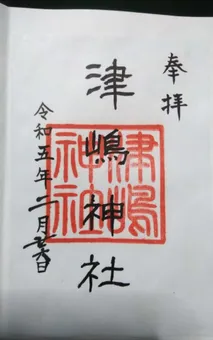 奉拝
津嶋神社
津嶋神社
令和五年二月二六日